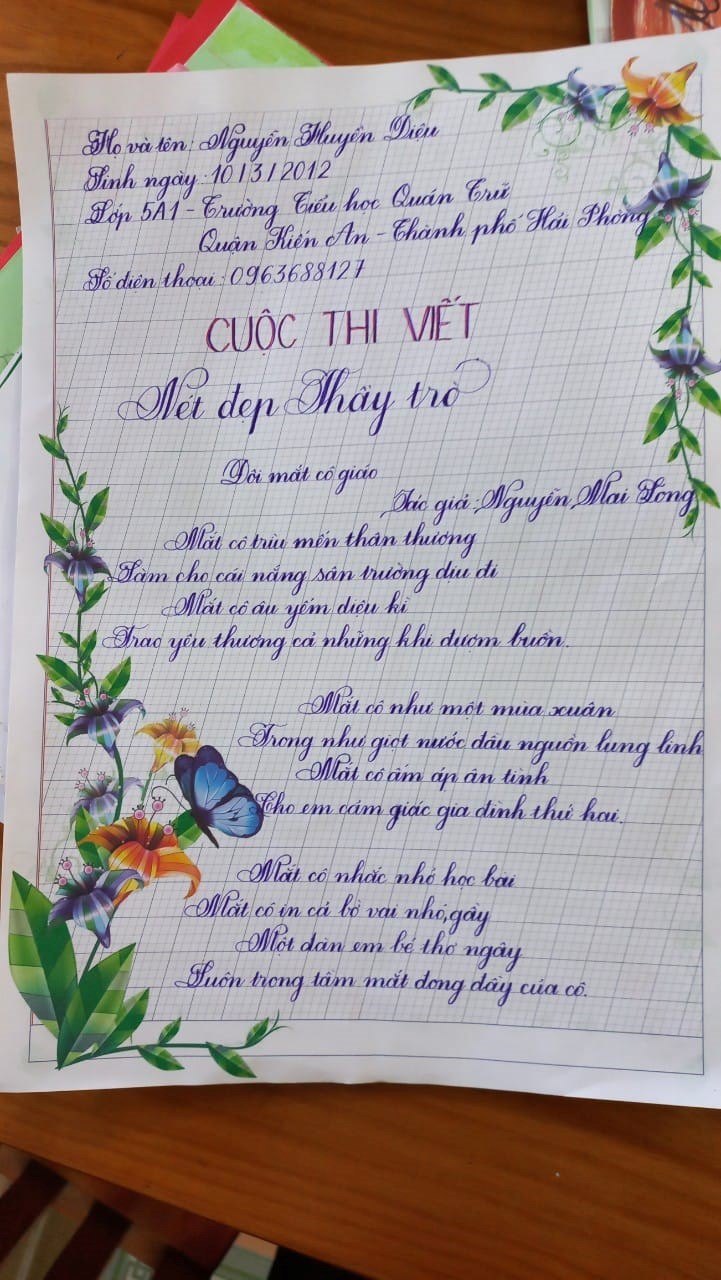 Họ và tên: Nguyễn Huyền Diệu
Sinh ngày: 10/3/2012
Lớp 5A1 - Trường Tiểu học Quán Trữ
Quận Kiến An - Thành phố Hải Phòng
Số điện thoại: 0963688127
CUỘC THI VIẾT
Nét đẹp Thầy trò
Đôi mắt cô giáo
Tác giả: Nguyễn Mai Long
Mắt cô trìu mến thân thương
Làm cho cái nắng sân trường dịu đi
Mắt cô âu yếm diệu kì
Trao yêu thương cả những khi đượm buồn.
Mắt cô như một mùa xuân
Trong như giọt nước đầu nguồn lung linh
Mắt cô ấm áp ân tình
Cho em cảm giác gia đình thứ hai.
Mắt cô nhắc nhở học bài
Mắt cô in cả bờ vai nhỏ, gầy
Một đàn em bé thơ ngây
Luôn trong tầm mắt đong đầy của cô.